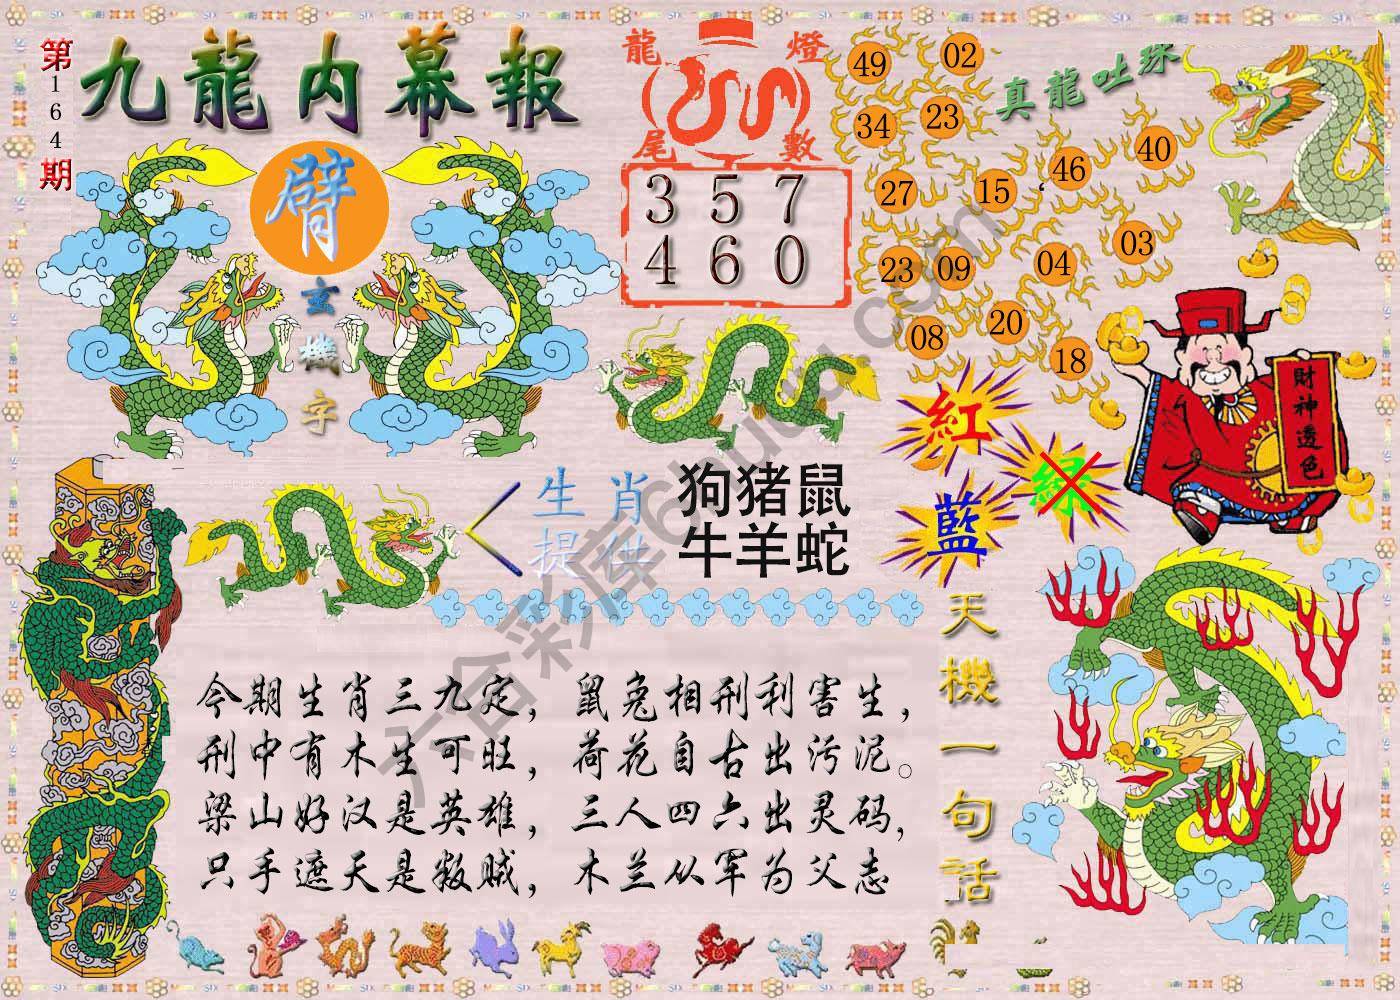 第164期
九龍内幕報
臂
玄機字
龍燈尾數
3 5 7
4 6 0
真龍吐珠
49 02
34 23
27 15 46 40
23 09 04 03
08 20 18
財神透色
紅
藍
綠
生肖提供
狗猪鼠
牛羊蛇
今期生肖三九定，鼠兔相刑利害生，
刑中有木生可旺，荷花自古出污泥。
梁山好汉是英雄，三人四六出灵码，
只手遮天是叛贼，木兰从军为父志
天機一句話
六合彩库6huou.com